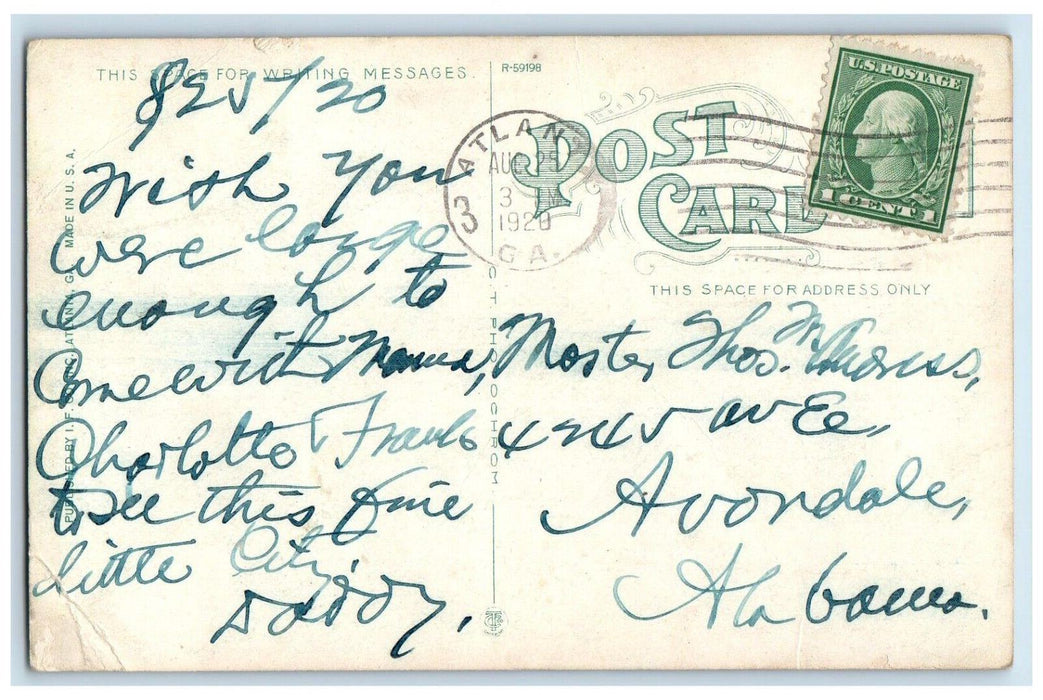 THIS SPACE FOR WRITING MESSAGES.
8/25/20
Wish you
were large
enough to
Come with Mama,
Charlotte & Frank
to see this fine
little City,
Daddy,
PUBLISHED BY I. F. ATLANTA, GA. MADE IN U.S.A.
R-59198
POST
CARD
ATLANTA
AUG 25
3 M
1920
GA.
3
U.S. POSTAGE
1 CENT 1
THIS SPACE FOR ADDRESS ONLY
Master Thos. M
Ave.
Avondale,
Alabama.
PHOTOCHROM